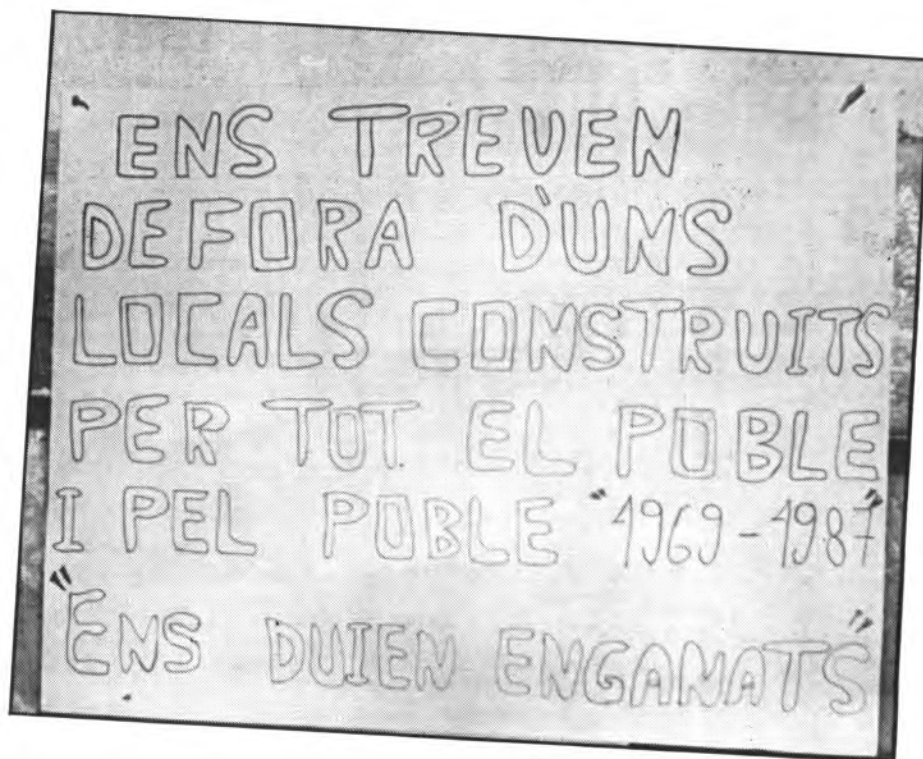 ENS TREUEN
DEFORA D'UNS
LOCALS CONSTRUITS
PER TOT EL POBLE
I PEL POBLE "1969-1987"
"ENS DUIEN ENGANATS"